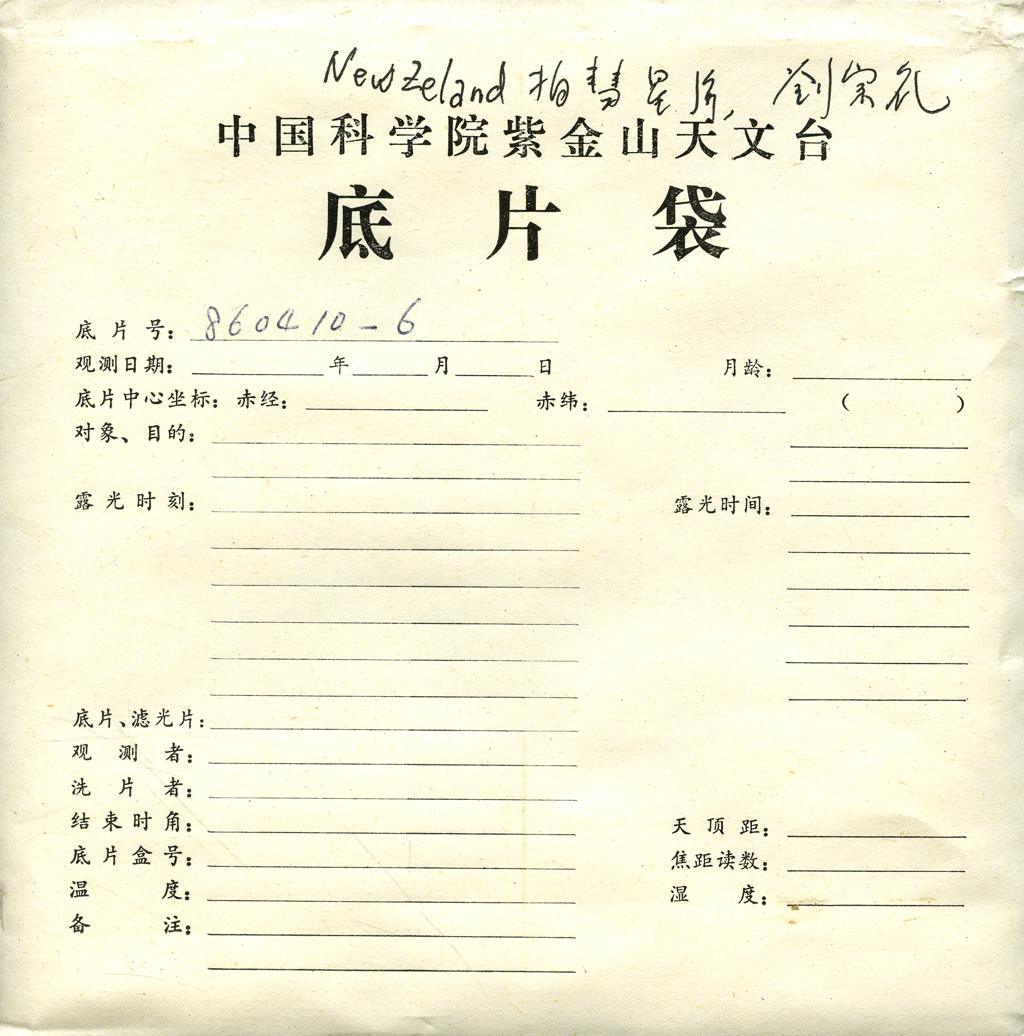 NewZeland 拍彗星片, 刘宗礼
中国科学院紫金山天文台
底片袋
底片号: 860410-6
观测日期: 年 月 日 月龄:
底片中心坐标: 赤经: 赤纬: ( )
对象、目的:
露光时刻: 露光时间:
底片、滤光片:
观测者:
洗片者:
结束时角: 天顶距:
底片盒号: 焦距读数:
温度: 湿度:
备注: